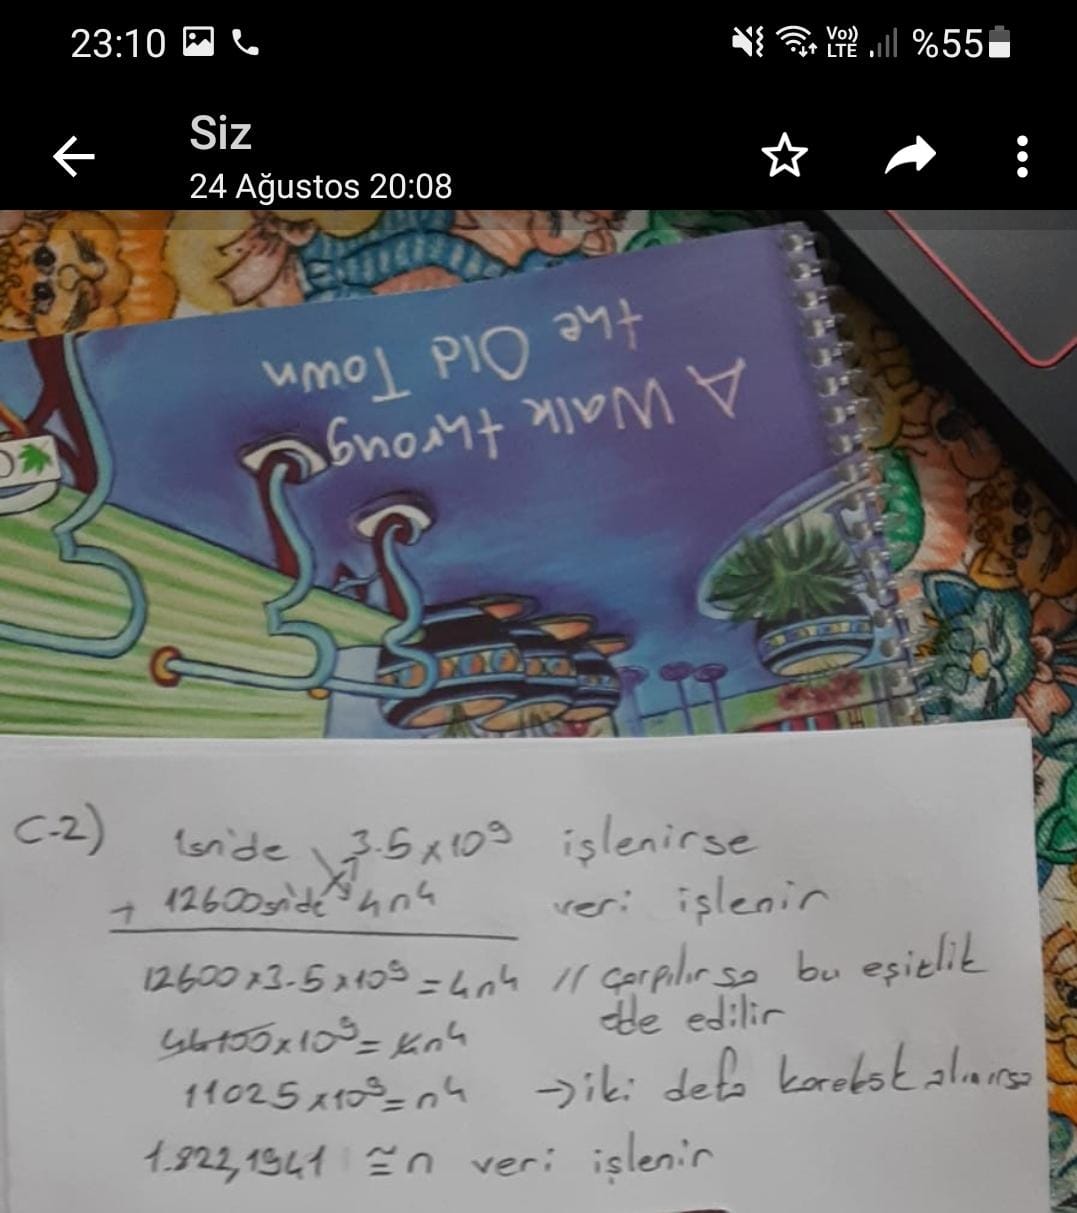 23:10
Vo))
LTE
%55
Siz
24 Ağustos 20:08
A Walk throug
the Old Town
C-2)
1snide 3.5x10⁹ işlenirse
+ 12600snide 4n4 veri işlenir
12600x3.5x10⁹=4n4 // çarpılırsa bu eşitlik
elde edilir
44100x10⁹=4n4
11025x10⁹=n4 →iki defa karekök alınırsa
1.822,1941 ≅n veri işlenir